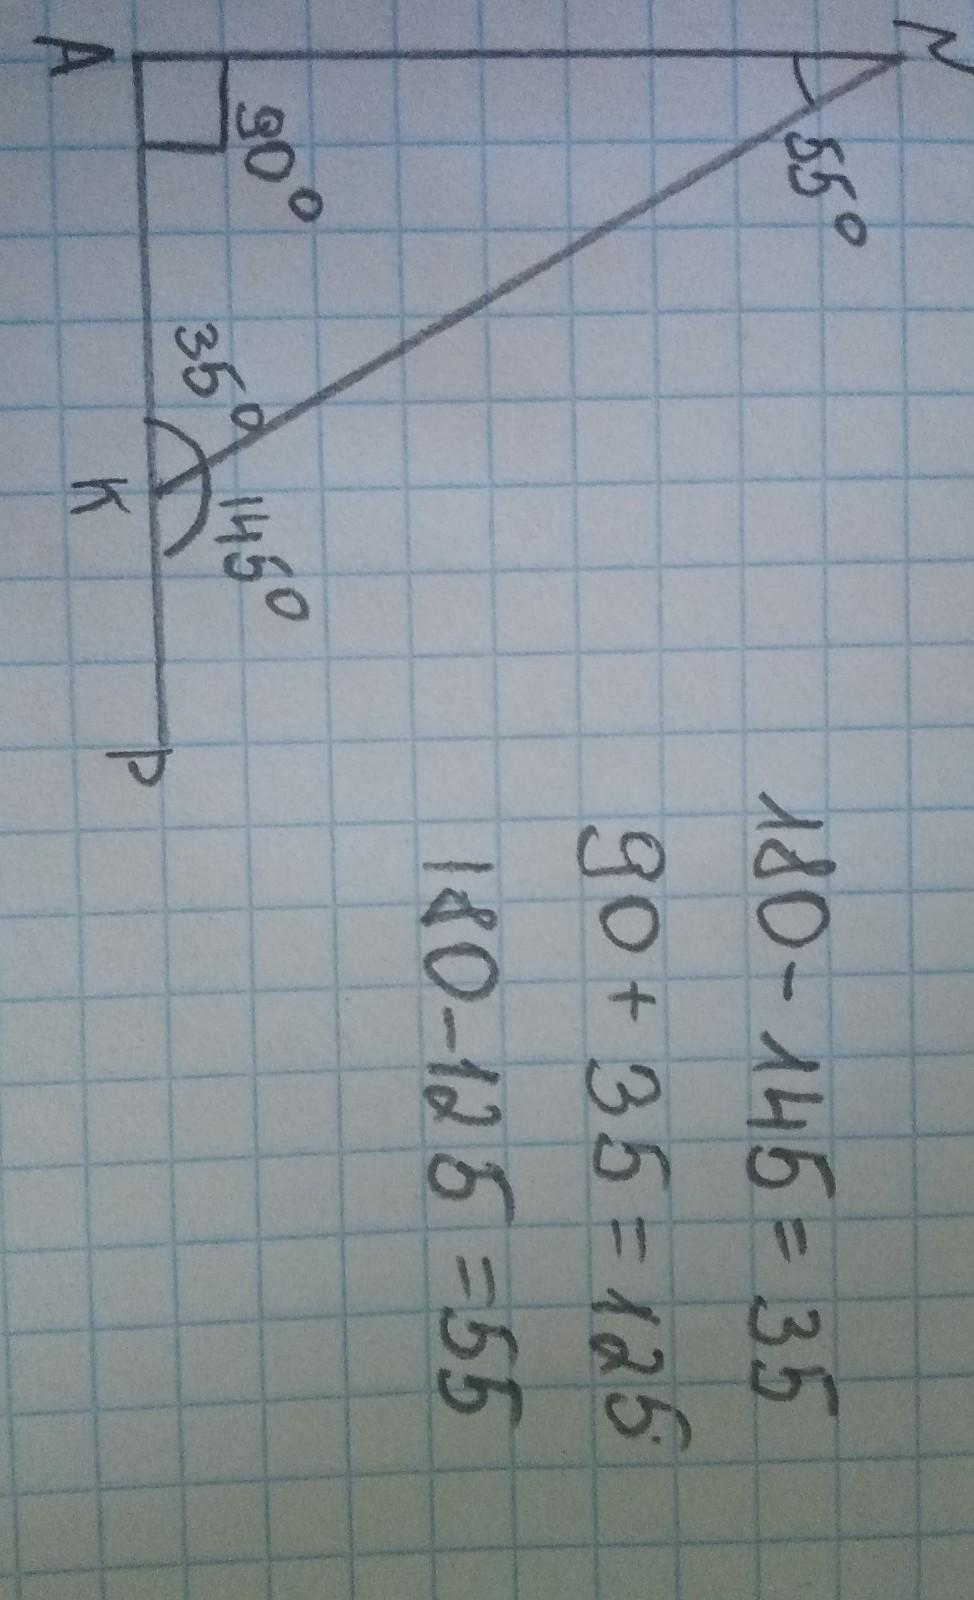 N
55°
90°
35°
145°
A
K
P
180-145=35
90+35=125
180-125=55